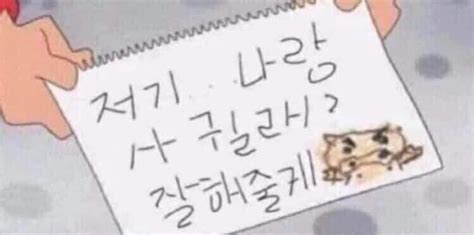 저기... 나랑
사귈래?
잘해줄게